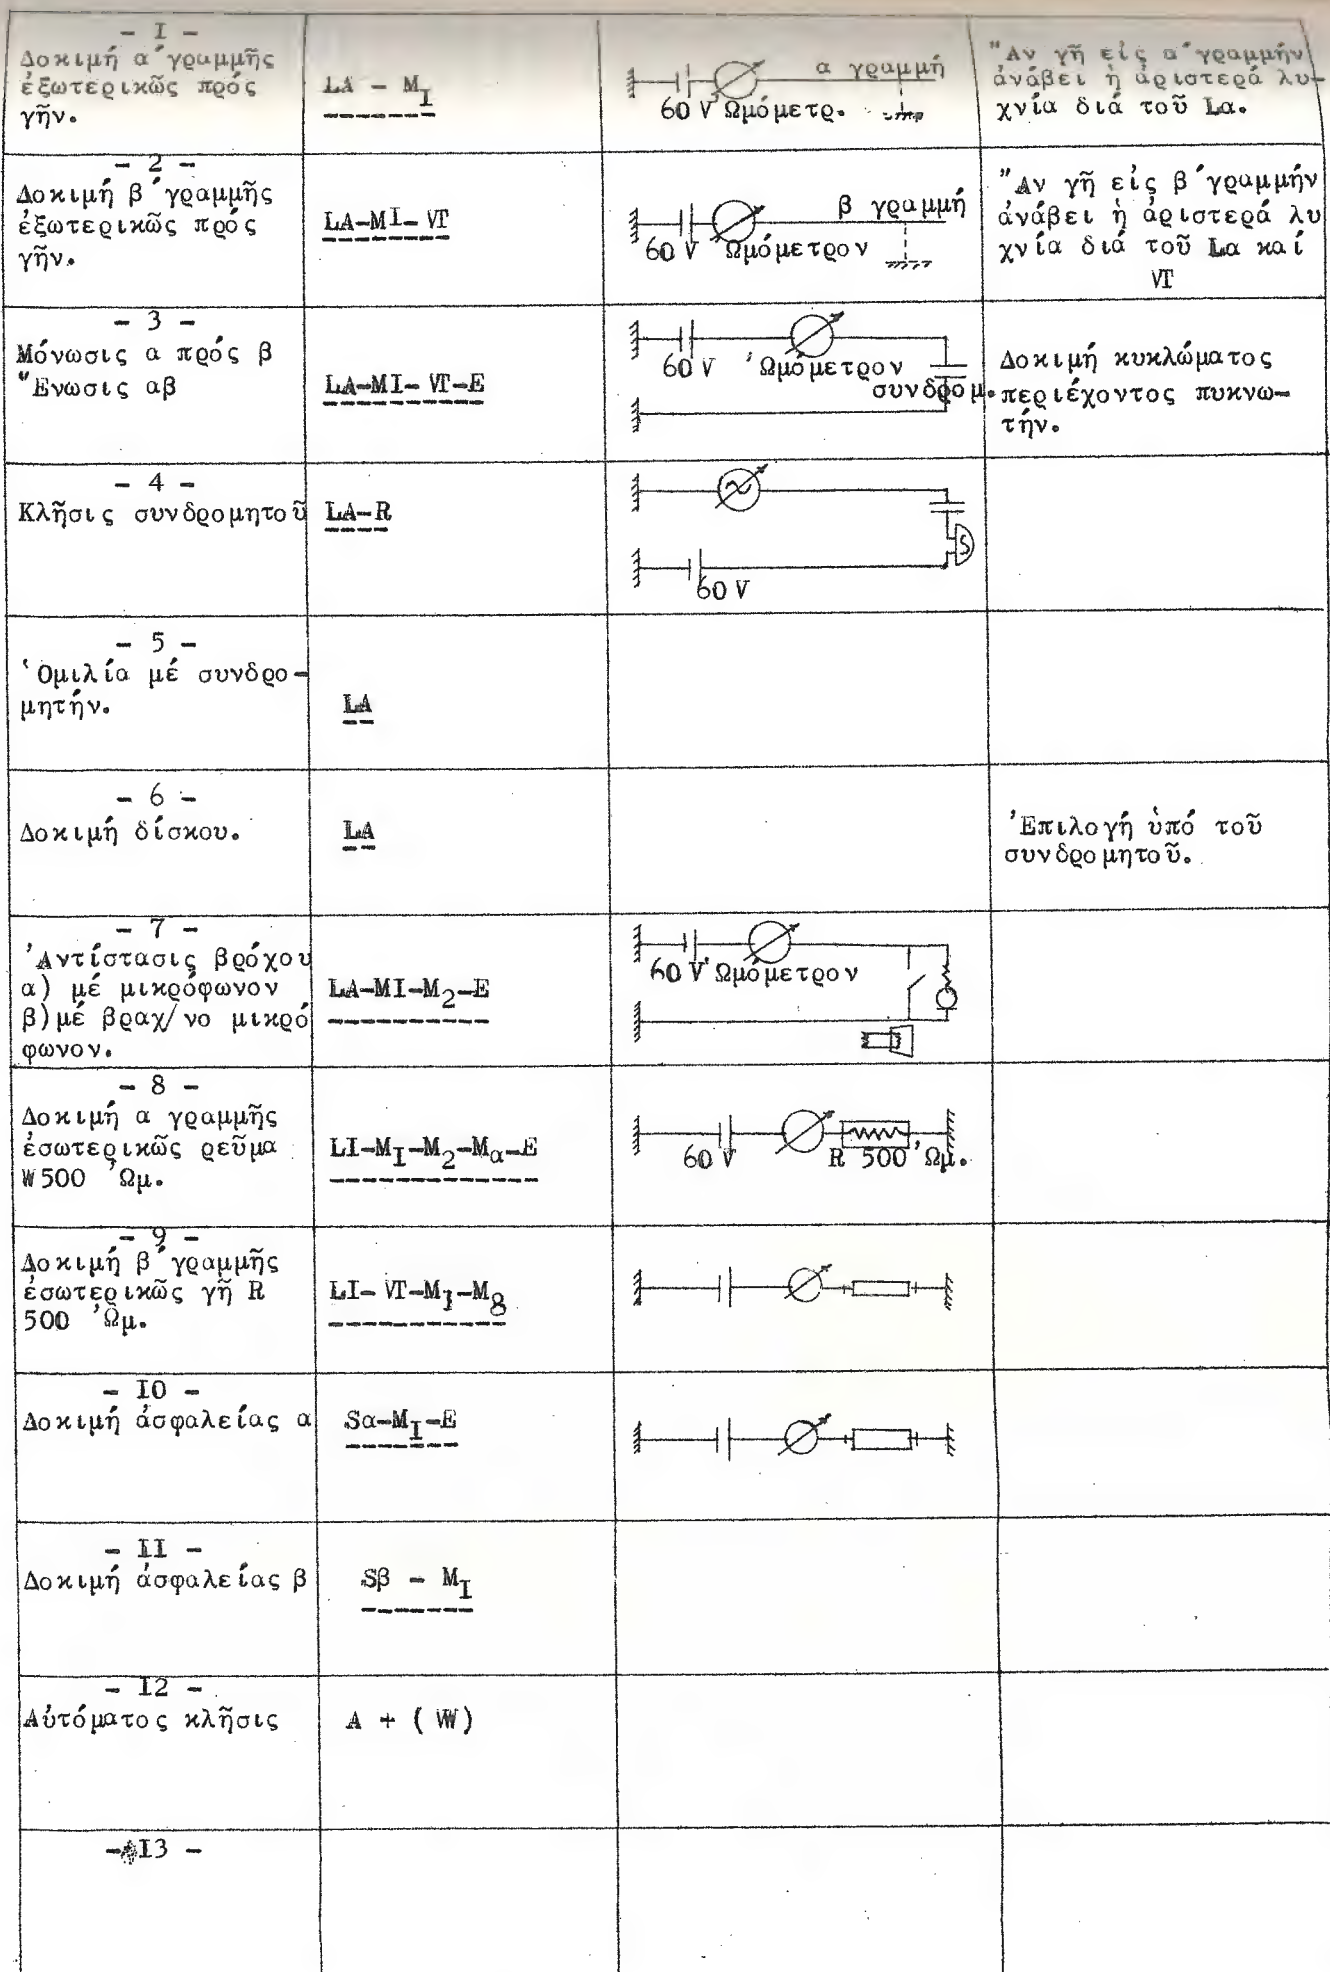 - I -
Δοκιμή α΄γραμμῆς
ἐξωτερικῶς πρός
γῆν.
LA - M_I
α γραμμή
60 V Ὠμόμετρ.
"Αν γῆ εἰς α΄γραμμήν
ἀνάβει ἡ ἀριστερά λυ-
χνία διά τοῦ La.
- 2 -
Δοκιμή β΄γραμμῆς
ἐξωτερικῶς πρός
γῆν.
LA-MI- VT
β γραμμή
60 V Ὠμόμετρον
"Αν γῆ εἰς β΄γραμμήν
ἀνάβει ἡ ἀριστερά λυ
χνία διά τοῦ La καί
VT
- 3 -
Μόνωσις α πρός β
"Ενωσις αβ
LA-MI- VT-E
60 V Ὠμόμετρον
συνδρομ.
Δοκιμή κυκλώματος
περιέχοντος πυκνω-
τήν.
- 4 -
Κλῆσις συνδρομητοῦ
LA-R
60 V
- 5 -
Ὁμιλία μέ συνδρο-
μητήν.
LA
- 6 -
Δοκιμή δίσκου.
LA
Ἐπιλογή ὑπό τοῦ
συνδρομητοῦ.
- 7 -
Ἀντίστασις βρόχου
α) μέ μικρόφωνον
β)μέ βραχ/νο μικρό
φωνον.
LA-MI-M₂-E
60 V Ὠμόμετρον
- 8 -
Δοκιμή α γραμμῆς
ἐσωτερικῶς ρεῦμα
W500 Ὠμ.
LI-M_I-M₂-Mα-E
60 V
R 500 Ὠμ.
- 9 -
Δοκιμή β΄γραμμῆς
ἐσωτερικῶς γῆ R
500 Ὠμ.
LI- VT-M₁-M₈
- IO -
Δοκιμή ἀσφαλείας α
Sα-M_I-E
- II -
Δοκιμή ἀσφαλείας β
Sβ - M_I
- I2 -
Αὐτόματος κλῆσις
A + ( W)
- I3 -